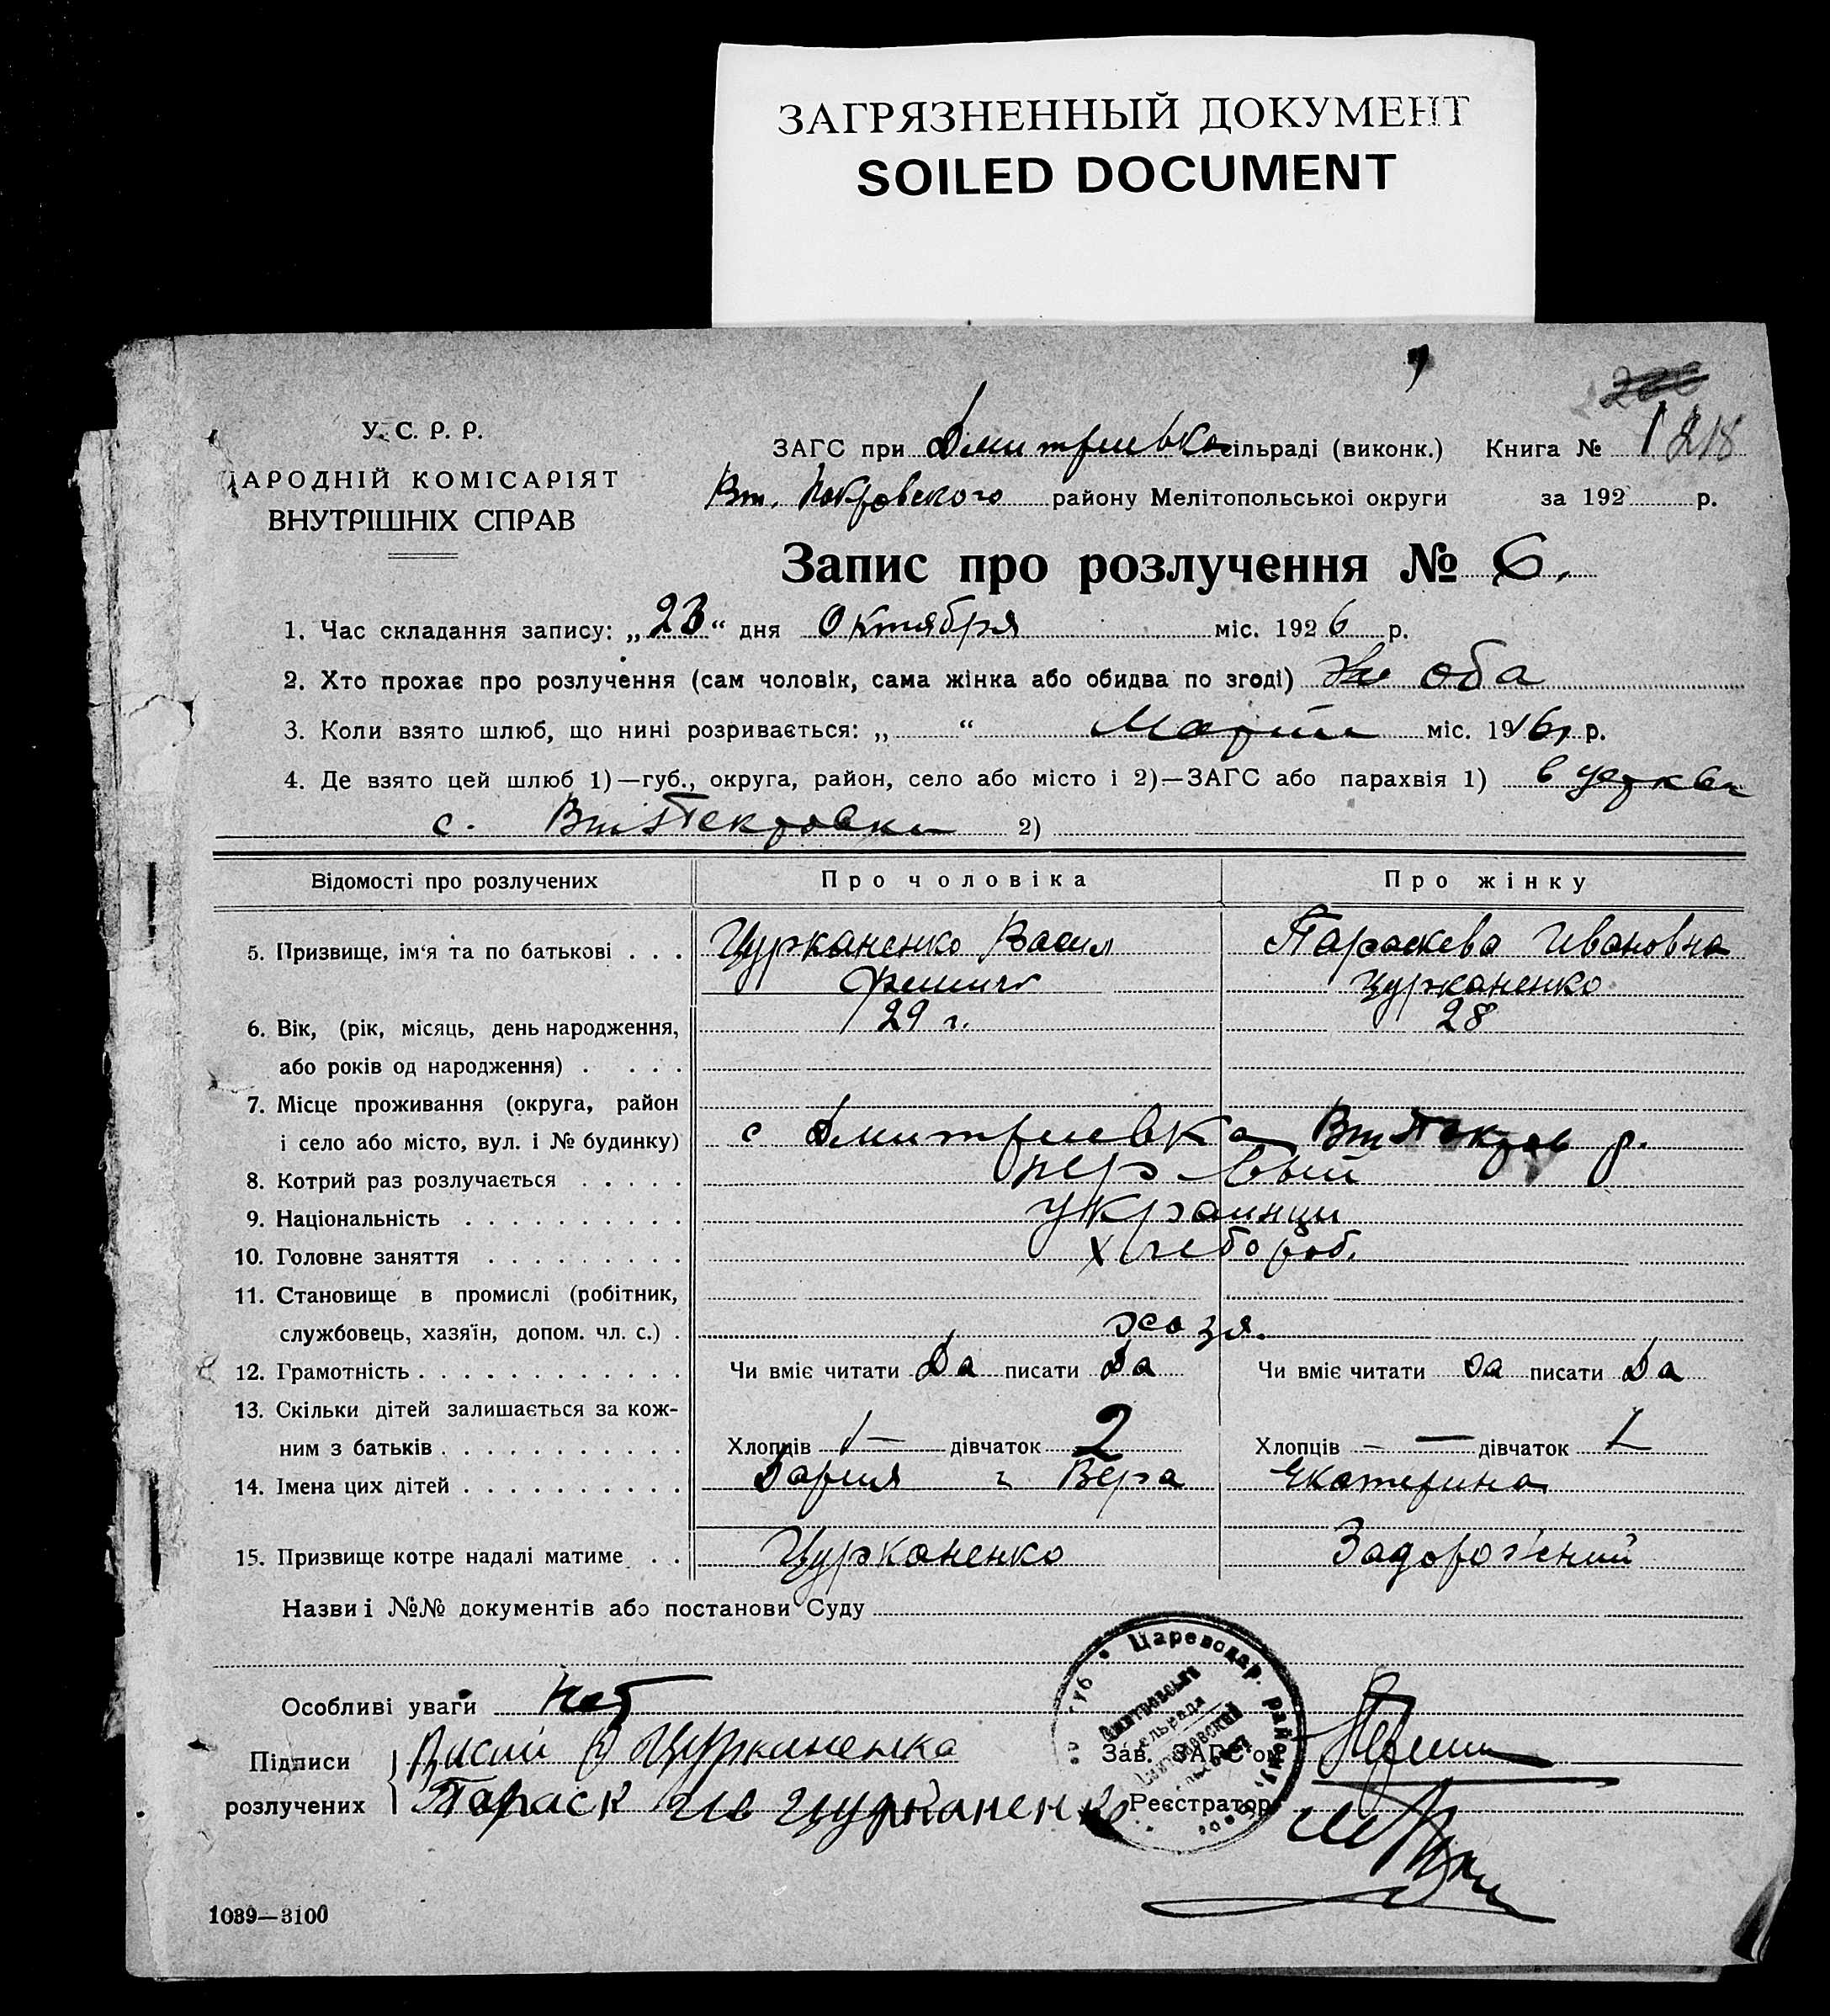 ЗАГРЯЗНЕННЫЙ ДОКУМЕНТ
SOILED DOCUMENT
У. С. Р. Р.
НАРОДНІЙ КОМІСАРІЯТ
ВНУТРІШНІХ СПРАВ
ЗАГС при Дмитриевка сільраді (виконк.) Книга № 1 218
Вт. Покровского району Мелітопольської округи за 192 р.
Запис про розлучення № 6.
1. Час складання запису: „23“ дня Октября міс. 1926 р.
2. Хто прохає про розлучення (сам чоловік, сама жінка або обидва по згоді) оба
3. Коли взято шлюб, що нині розривається: „ “ міс. 1916 р.
4. Де взято цей шлюб 1)—губ., округа, район, село або місто і 2)—ЗАГС або парахвія 1) в церкви
с. Вт Покровки 2)
Відомості про розлучених Про чоловіка Про жінку
5. Призвище, ім'я та по батькові . . . Цурканенко Васил Параскева Ивановна
Цурканенко
6. Вік, (рік, місяць, день народження, 29 г. 28
або років од народження) . . . .
7. Місце проживання (округа, район
і село або місто, вул. і № будинку) с Дмитриевка Вт Покров р.
8. Котрий раз розлучається . . . . . первый
9. Національність . . . . . . . . . . украинци
10. Головне заняття . . . . . . . . . хлебороб.
11. Становище в промислі (робітник,
службовець, хазяїн, допом. чл. с.) . хозя.
12. Грамотність . . . . . . . . . . . . Чи вміє читати Да писати Да Чи вміє читати Да писати Да
13. Скільки дітей залишається за кож-
ним з батьків . . . . . . . . . . . Хлопців — дівчаток 2 Хлопців — — дівчаток 1
14. Імена цих дітей . . . . . . . . . . Дария Вера Екатерина
15. Призвище котре надалі матиме . . Цурканенко Задорожний
Назви і №№ документів або постанови Суду
Особливі уваги Нет
Цареводар. району
Підписи
розлучених
Цурканенко
Зав. ЗАГС'ом
Параск Ив Цурканенко
Реєстратор
1039—3100